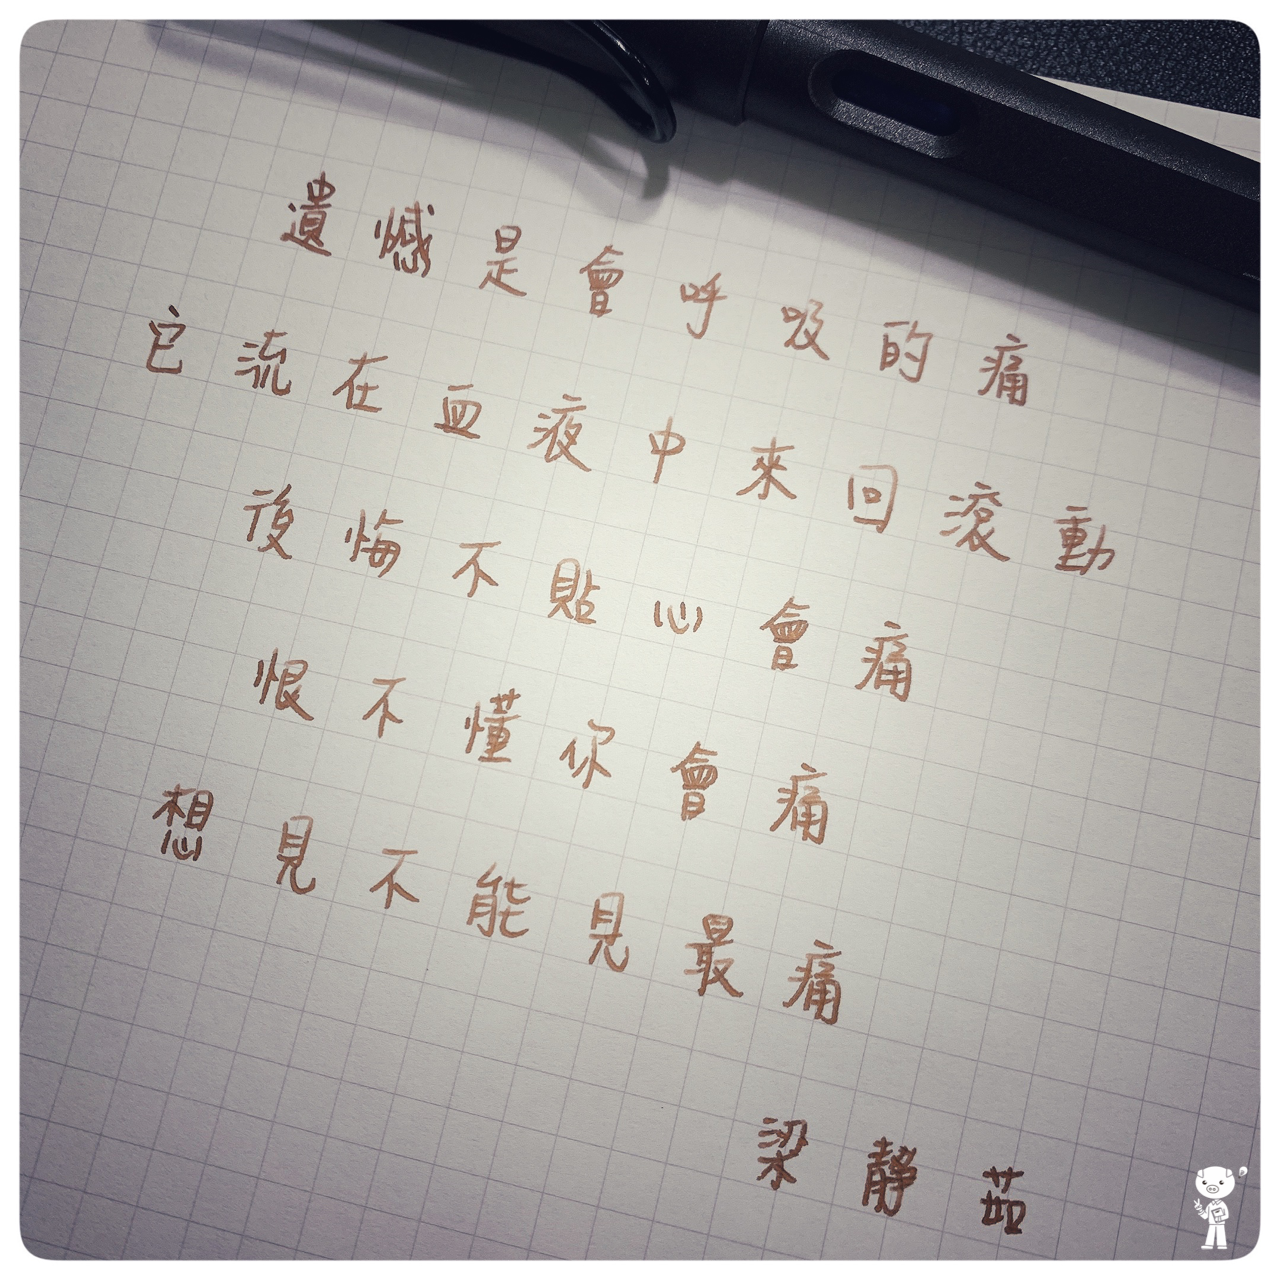 遺憾是會呼吸的痛
它流在血液中來回滾動
後悔不貼心會痛
恨不懂你會痛
想見不能見最痛
梁靜茹